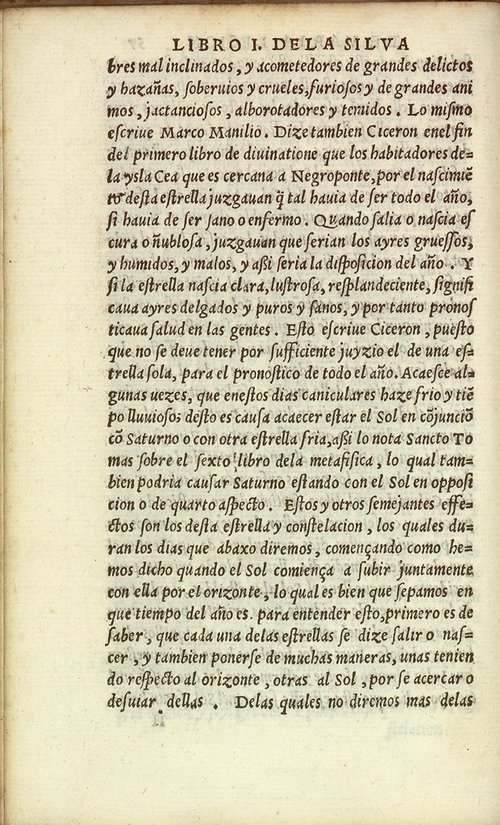 LIBRO I. DELA SILVA
bres mal inclinados, y acometedores de grandes delictos
y hazañas, soberuios y crueles, furiosos y de grandes ani
mos, jactanciosos, alborotadores y temidos. Lo mismo
escriue Marco Manilio. Dize tambien Ciceron enel fin
del primero libro de diuinatione que los habitadores de=
la ysla Cea que es cercana a Negroponte, por el nascimiẽ
to desta estrella juzgauan q̃ tal hauia de ser todo el año,
si hauia de ser sano o enfermo. Quando salia o nascia es
cura o ñublosa, juzgauan que serian los ayres gruessos,
y humidos, y malos, y aßi seria la disposicion del año. Y
si la estrella nascia clara, lustrosa, resplandeciente, signifi
caua ayres delgados y puros y sanos, y por tanto pronos
ticaua salud en las gentes. Esto escriue Ciceron, puesto
que no se deue tener por sufficiente juyzio el de una es=
trella sola, para el pronostico de todo el año. Acaesce al=
gunas uezes, que enestos dias caniculares haze frio y tiẽ
po lluuioso; desto es causa acaecer estar el Sol en cõjunciõ
cõ Saturno o con otra estrella fria, aßi lo nota Sancto To
mas sobre el sexto libro dela metafisica, lo qual tam=
bien podria causar Saturno estando con el Sol en opposi
cion o de quarto aspecto. Estos y otros semejantes effe=
ctos son los desta estrella y constelacion, los quales du=
ran los dias que abaxo diremos, començando como he=
mos dicho quando el Sol comiença a subir juntamente
con ella por el orizonte, lo qual es bien que sepamos en
que tiempo del año es. para entender esto, primero es de
saber, que cada una delas estrellas se dize salir o nas=
cer, y tambien ponerse de muchas maneras, unas tenien
do respecto al orizonte, otras al Sol, por se acercar o
desuiar dellas. Delas quales no diremos mas delas